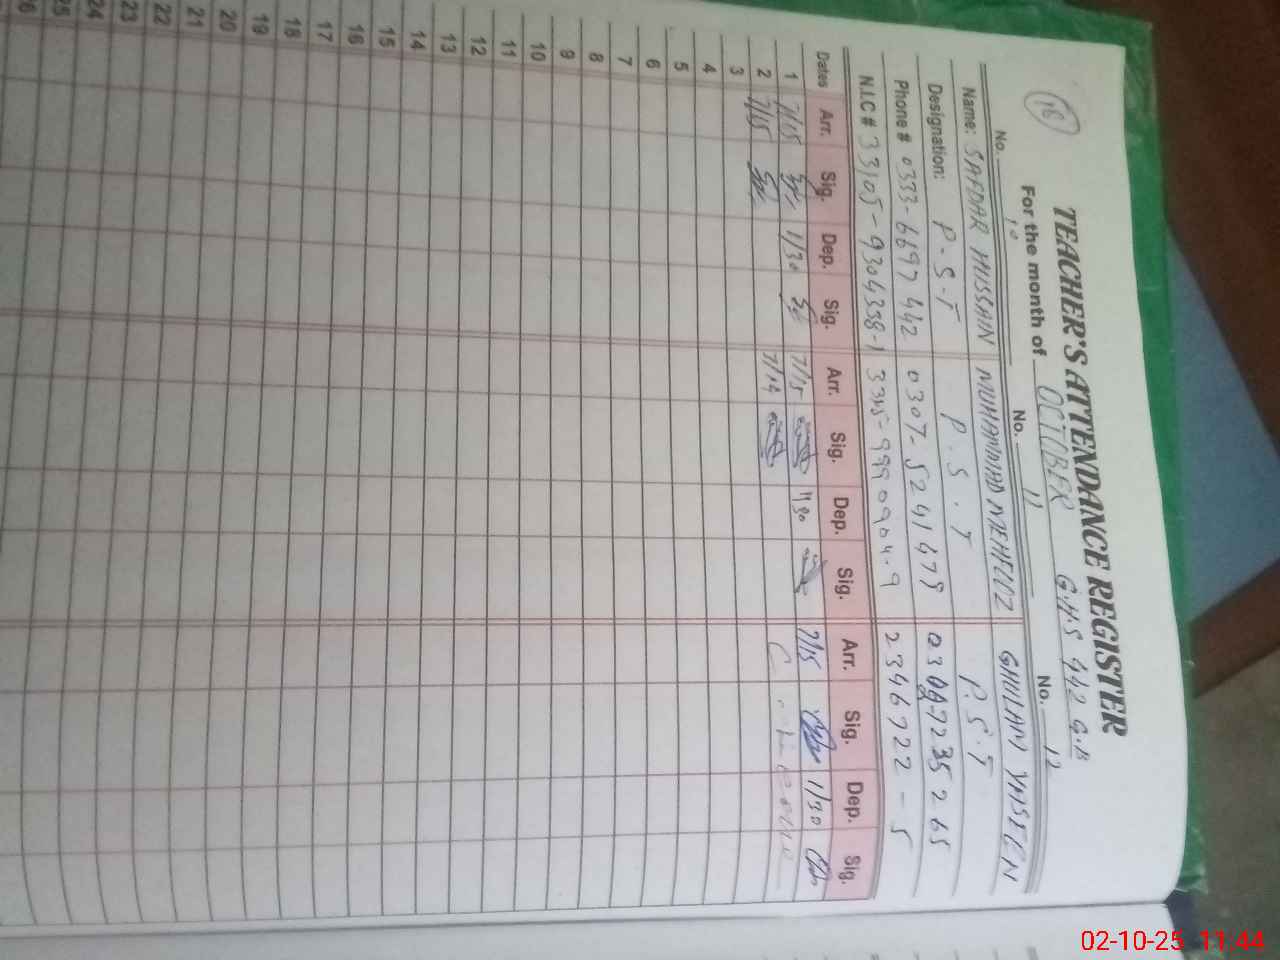 16
TEACHER'S ATTENDANCE REGISTER
For the month of OCTOBER G.H.S 442 G.B
No. 10 No. 11 No. 12
Name: SAFDAR HUSSAIN MUHAMMAD MEHFOOZ GHULAM YASEEN
Designation: P.S.T P.S.T P.S.T
Phone # 0333-6697442 0307-5241479
N.I.C # 33105-9304338-1 2346722-5
Dates Arr. Sig. Dep. Sig. Arr. Sig. Dep. Sig. Arr. Sig. Dep. Sig.
1 7/15 1/30 7/15 1/30 7/15 1/30
2 7/15 7/14
3
4
5
6
7
8
9
10
11
12
13
14
15
16
17
18
19
20
21
22
23
24
25
26
02-10-25 11:44